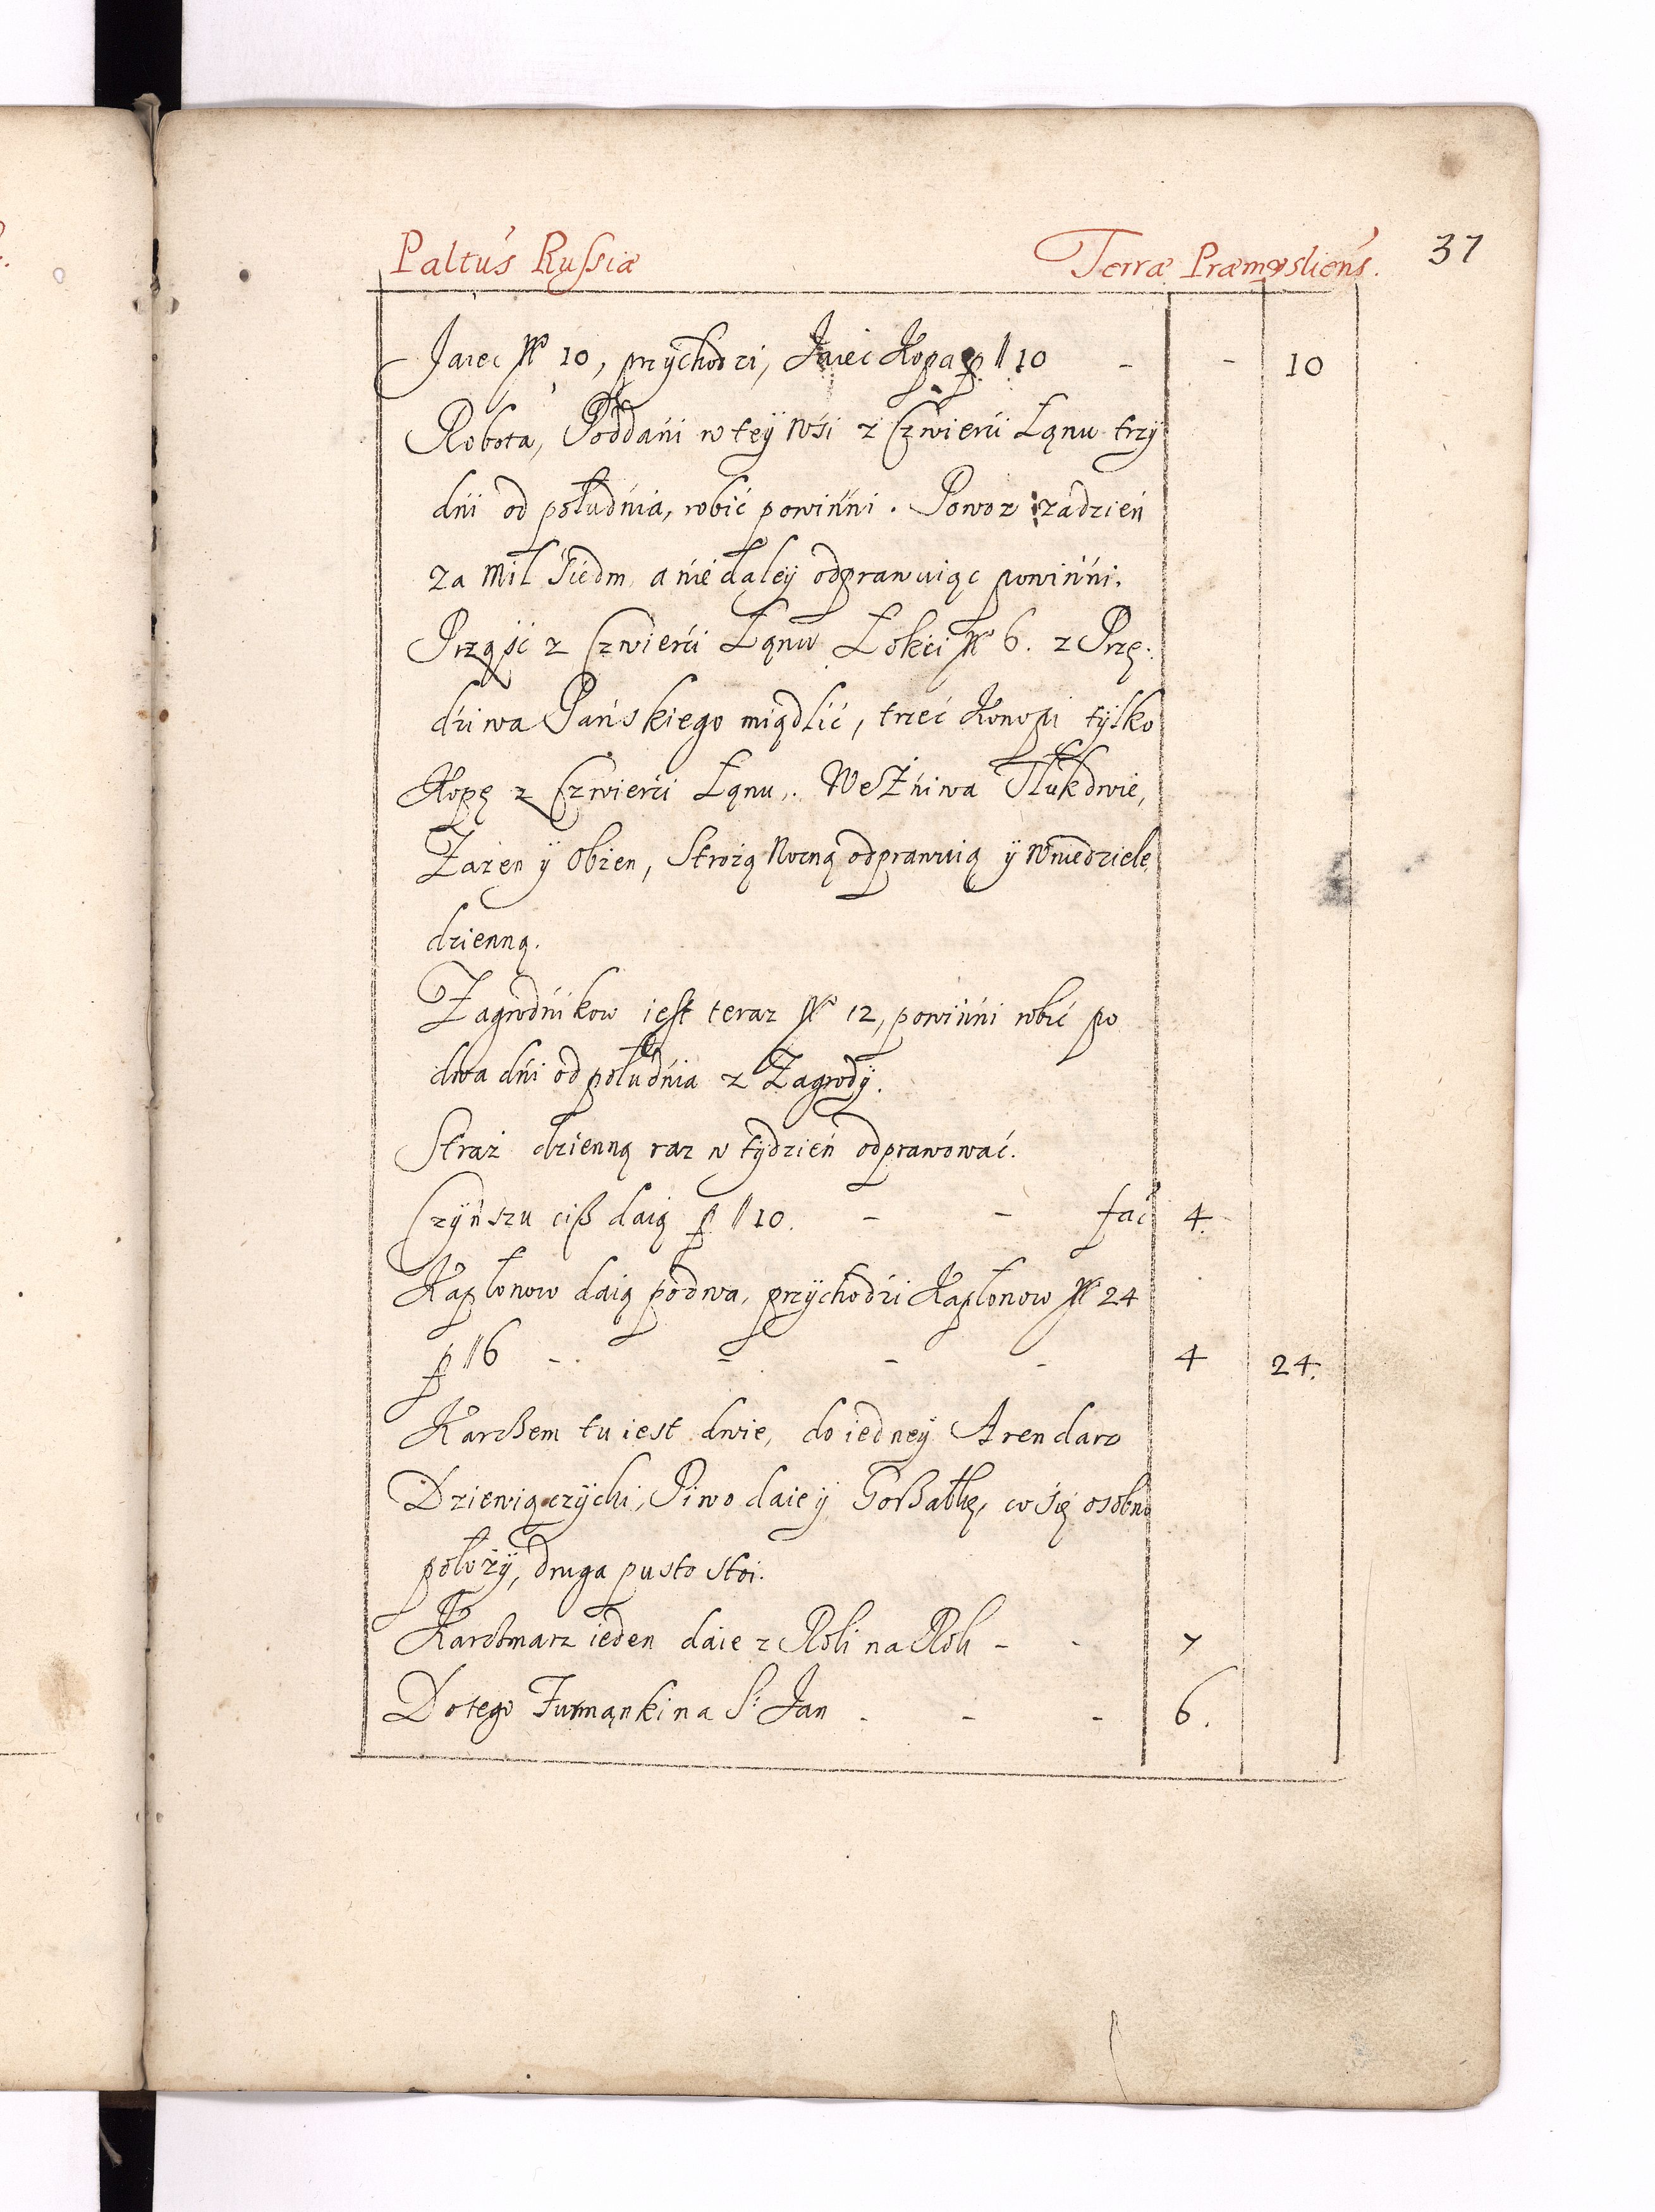 Paltus Russiæ Terræ Præmysliens. 37
Jaiec N° 10, przychodzi, Jaiec Kopa p // 10 - - 10
Robota, Poddani w teÿ Wsi z Czwierci Łąnu trzÿ
dni od południa, robić powinni. Powoz zadzień
za Mil Siedm, a nie daleÿ odprawuiąc powinni.
Prząść z Czwierci Łąnu Łokci N° 6. z Przę:
dziwa Pańskiego miądlić, trzeć Konopi tÿlko
Kopę z Czwierci Łąnu. We Żniwa Tłuk dwie,
Zażen ÿ Obżen, Strożą Nocną odprawuią ÿ W niedziele
dzienną.
Zagrodnikow iest teraz N° 12, powinni robić po
dwa dni od południa z Zagrodÿ.
Straż dzienną raz w tÿdzień odprawować.
Czÿnszu ciß daią p // 10. - - fac 4.
Kapłonow daią po dwa, przÿchodzi Kapłonow N° 24
p // 6 - - - - 4 24.
Karcßem tu iest dwie, do iedneÿ Arendarz
Dziewięczÿcki, Piwo daie ÿ Gorßałkę, co się osobno
położÿ, druga pusto stoi.
Karcßmarz ieden daie z Roli na Rok - - 7
Do tego Furmąnki na S: Jan - - - 6.